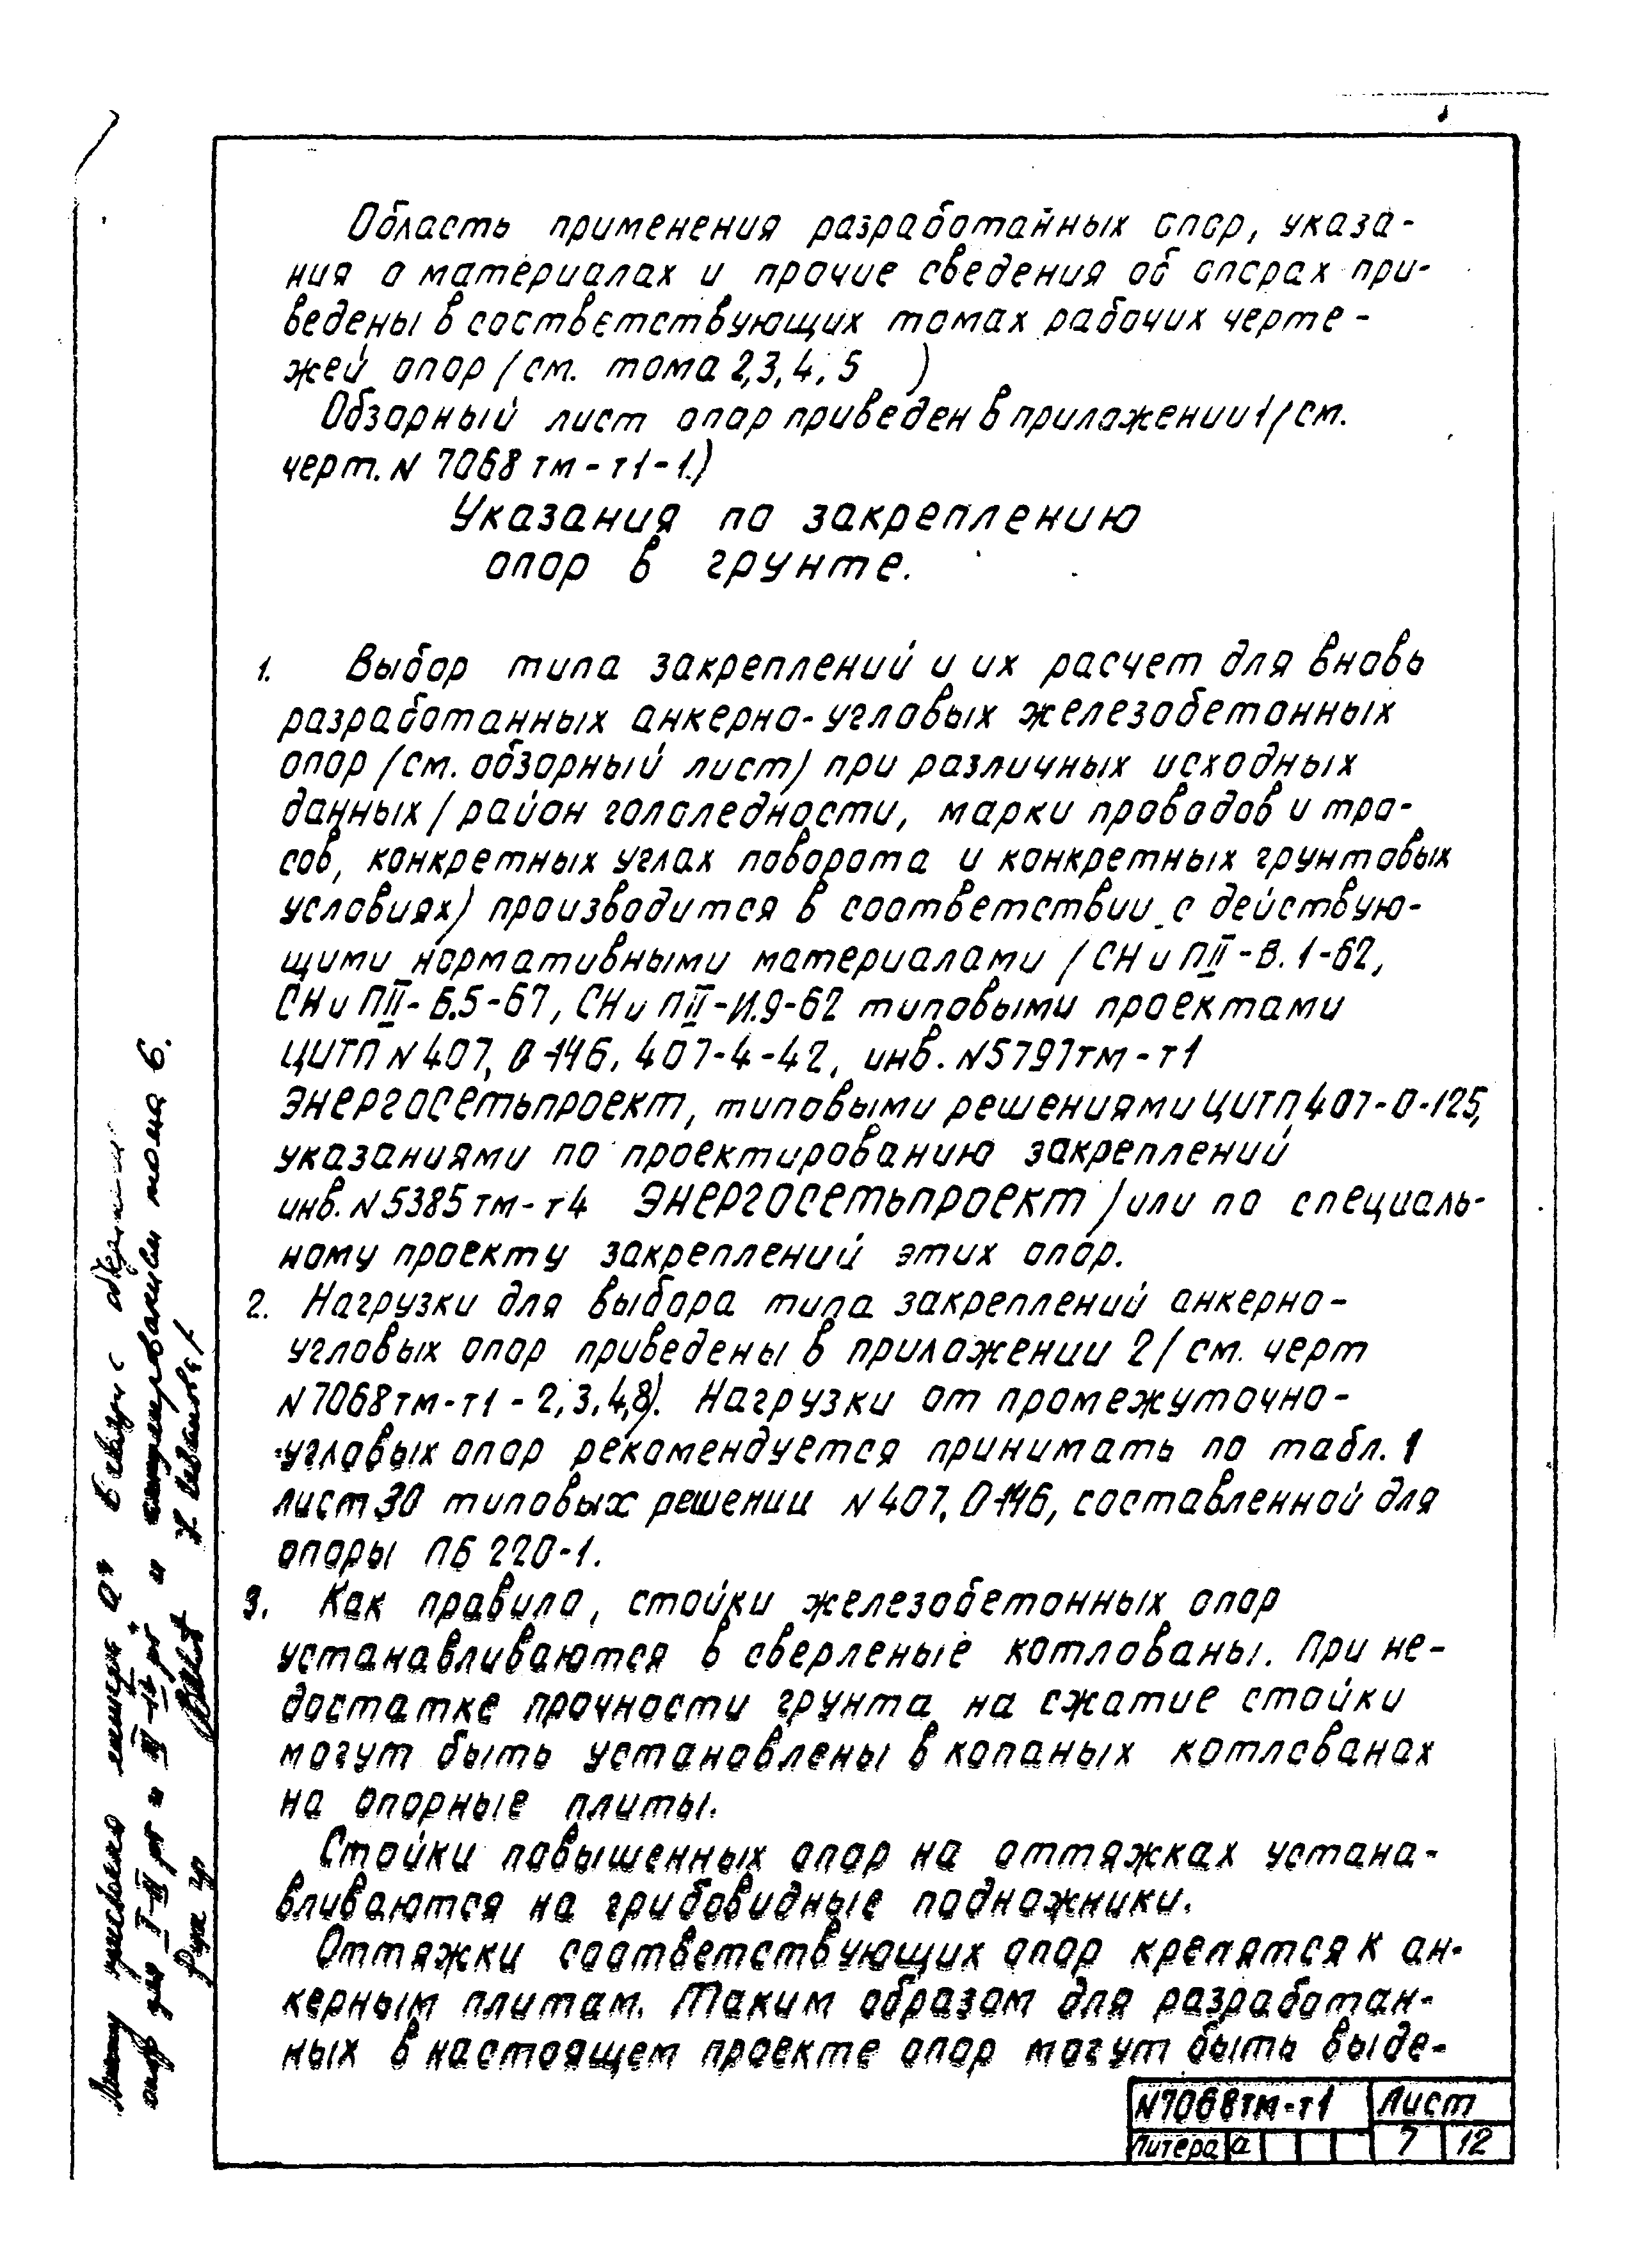 Область применения разработанных опор, указа-
ния о материалах и прочие сведения об опорах при-
ведены в соответствующих томах рабочих черте-
жей опор /см. тома 2,3,4,5 )
Обзорный лист опор приведен в приложении 1/см.
черт. N 7068тм-т1-1.)
Указания по закреплению
опор в грунте.
1. Выбор типа закреплений и их расчет для вновь
разработанных анкерно-угловых железобетонных
опор /см. обзорный лист) при различных исходных
данных / район гололедности, марки проводов и тро-
сов, конкретных углах поворота и конкретных грунтовых
условиях) производится в соответствии с действую-
щими нормативными материалами /СН и ПII-В.1-62,
СН и ПII-Б.5-67, СН и ПII-И.9-62 типовыми проектами
ЦИТП N 407, 0-146, 407-4-42, инв. N5797тм-т1
Энергосетьпроект, типовыми решениями ЦИТП 407-0-125,
указаниями по проектированию закреплений
инв. N 5385тм-т4 Энергосетьпроект /или по специаль-
ному проекту закреплений этих опор.
2. Нагрузки для выбора типа закреплений анкерно-
угловых опор приведены в приложении 2/ см. черт
N7068тм-т1-2,3,4,8). Нагрузки от промежуточно-
угловых опор рекомендуется принимать по табл. 1
лист 30 типовых решении N 407, 0-146, составленной для
опоры ПБ 220-1.
3. Как правило, стойки железобетонных опор
устанавливаются в сверленые котлованы. При не-
достатке прочности грунта на сжатие стойки
могут быть установлены в копаных котлованах
на опорные плиты.
Стойки повышенных опор на оттяжках устана-
вливаются на грибовидные подножники.
Оттяжки соответствующих опор крепятся к ан-
керным плитам. Таким образом для разработан-
ных в настоящем проекте опор могут быть выде-
N7068тм-т1 Лист
Литера а 7 12
Листу присвоена литера "а" в связи с
опор для I-II рг и III-IV рг" и тома 6.
Рук. гр